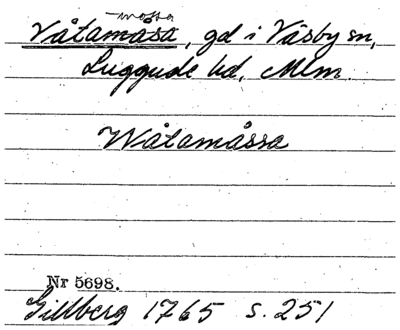 -mossa
Våtamosa, gd i Väsby sn,
Luggude hd, Mlm
Wåtamåssa
Nr 5698.
Gillberg 1765 s. 251